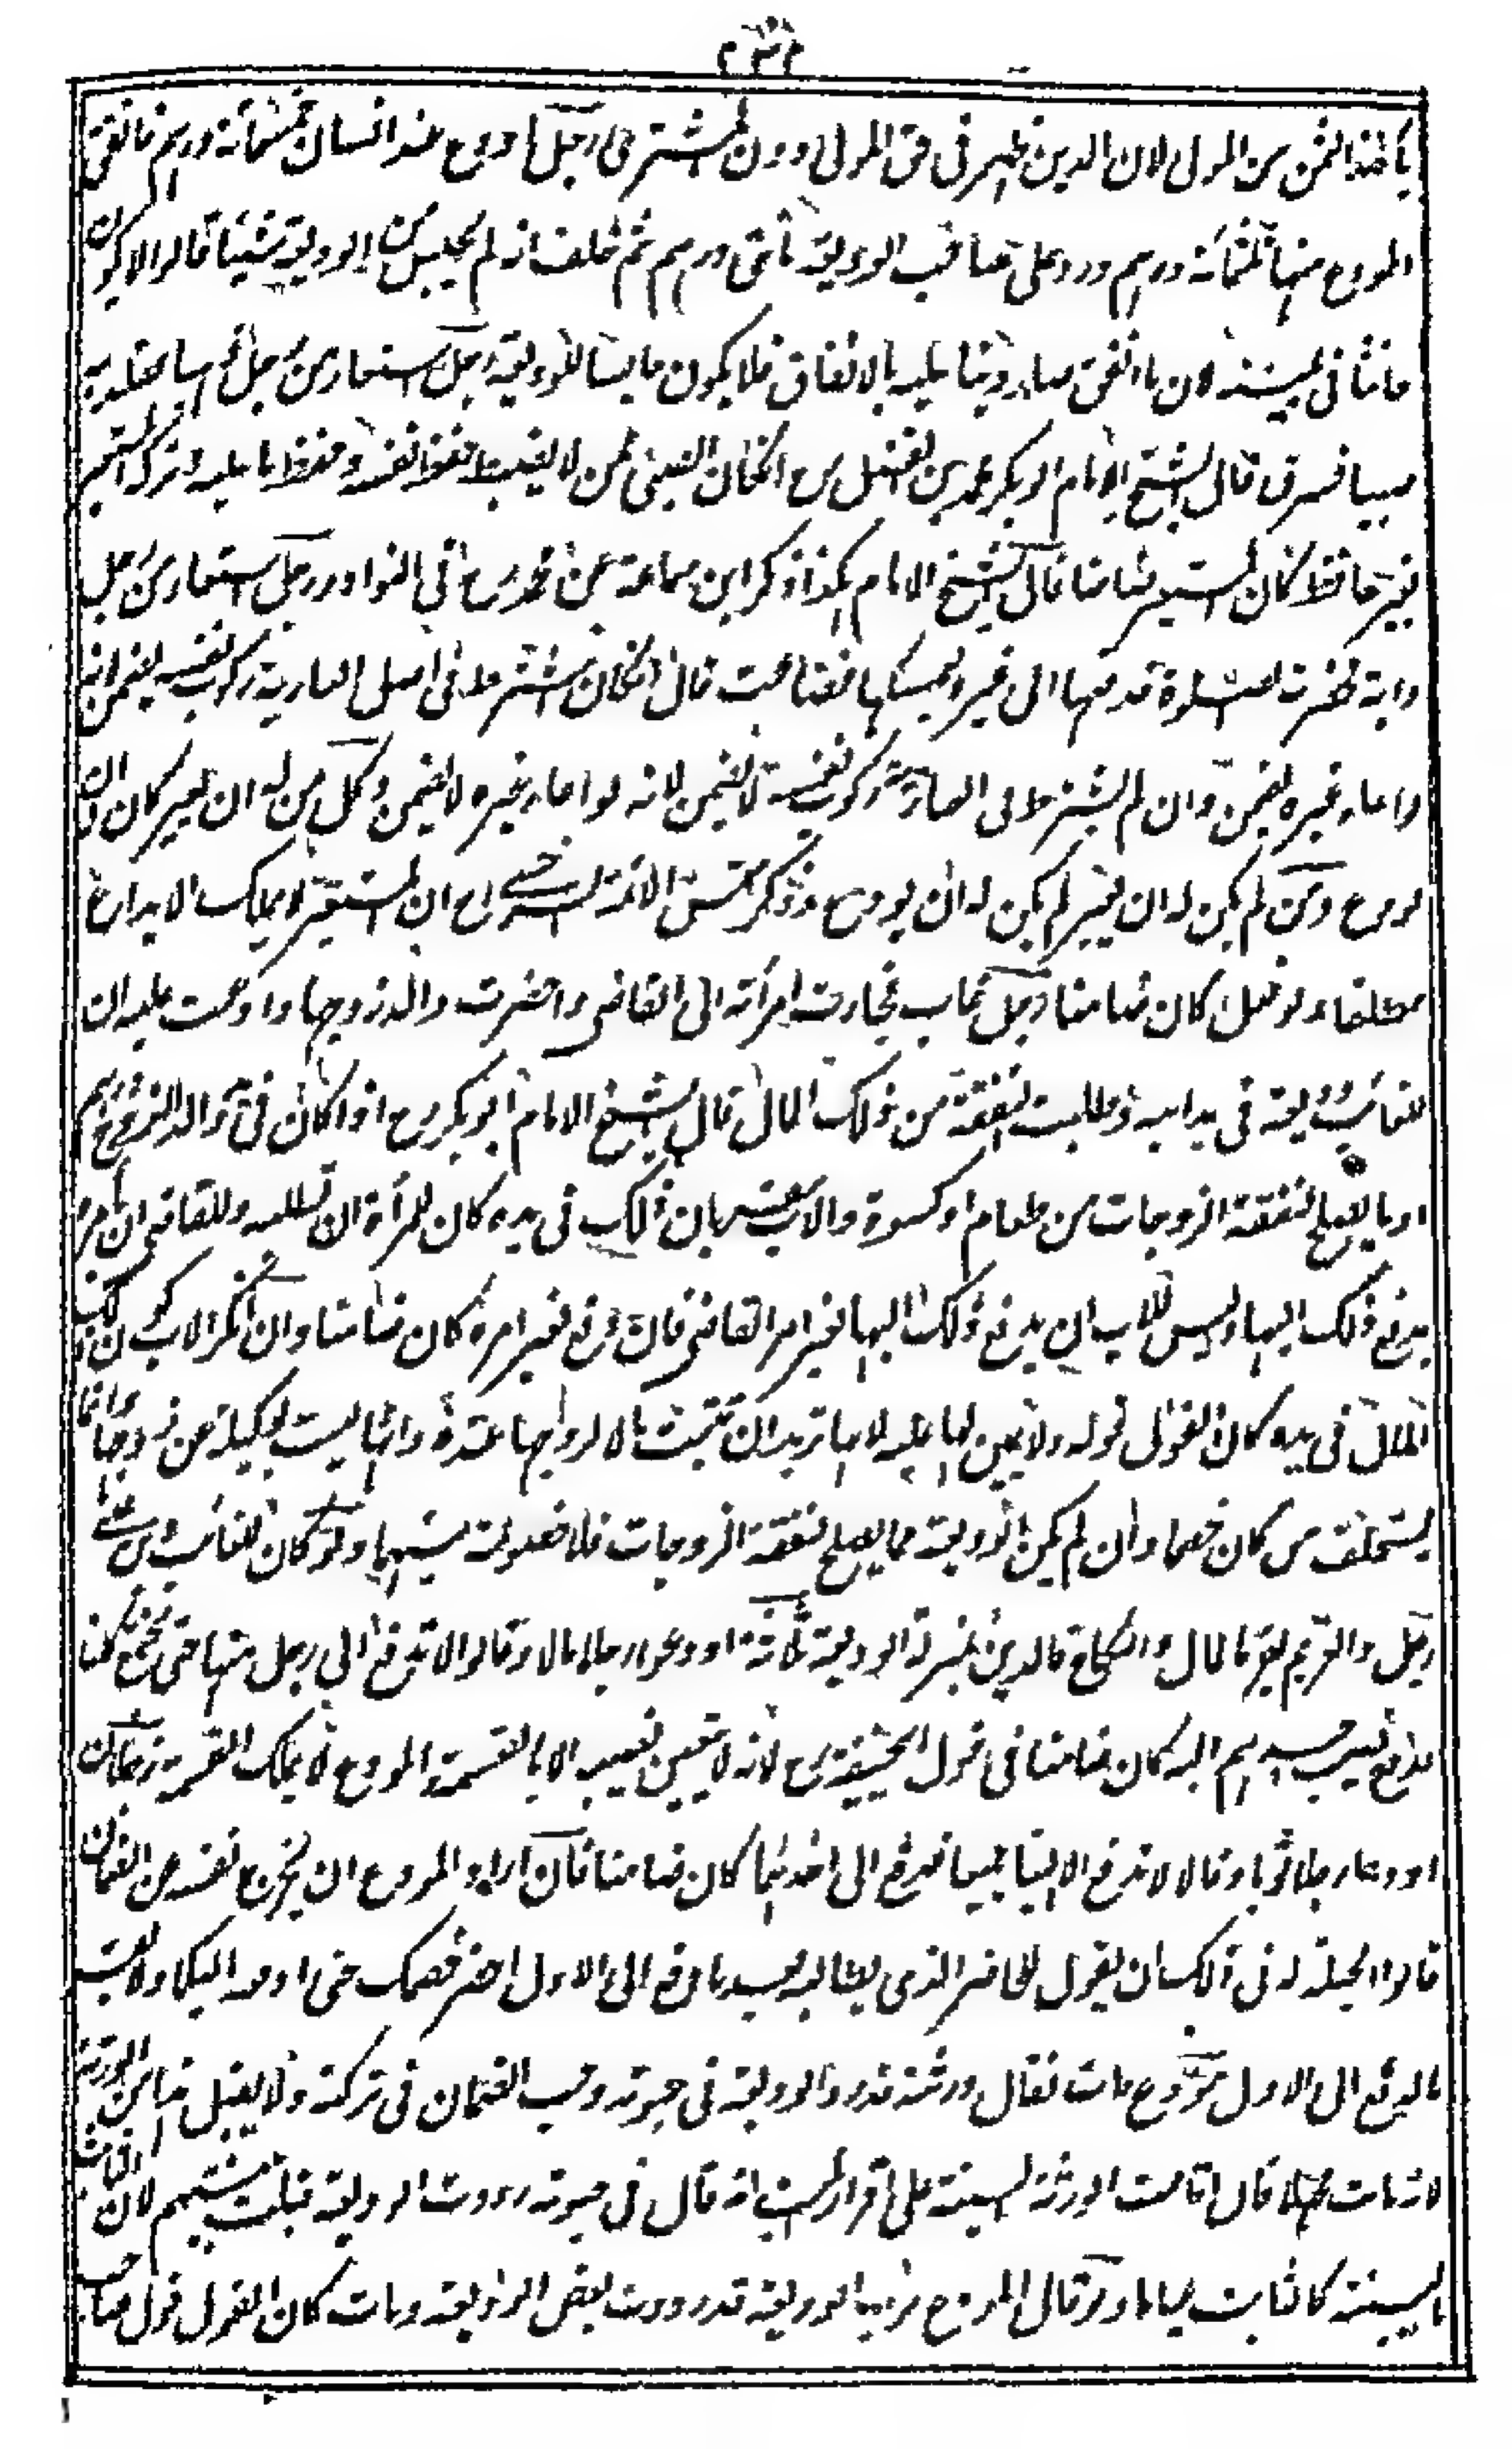 يأخذ الثمن من المولى لان الدين ظهر فى حق المولى دون المشترى رجل اودع عند انسان خمسمائة درهم فانفق
المودع منها ثلثمائة درهم ورد على صاحب الوديعة مائتى درهم ثم حلف انه لم يحبس من الوديعة شيئا قالوا لا يكون
حانثا فى يمينه لان ما انفق صار دينا عليه بالانفاق فلا يكون حابسا للوديعة رجل استعار من رجل
صبيا فسرق قال الشيخ الامام ابو بكر محمد بن الفضل رح انكان الصبى ممن لا يضبط حفظ نفسه وحفظ ما عليه وترك المستعير
بغير حافظ كان المستعير ضامنا قال الشيخ الامام هكذا ذكر ابن سماعة عن محمد رح فى النوادر رجل استعار من رجل
دابة فحضرت الصلوة فدفعها الى غيره ليمسكها فضاعت قال انكان شرط فى اصل العارية ركوب نفسه يضمن لانه
لو اعار غيره يضمن وان لم يشترط فى العارية ركوب نفسه لا يضمن لانه لو اعار غيره لا يضمن وكل من له ان يعير كان له ان
يودع ومن لم يكن له ان يعير لم يكن له ان يودع وذكر شمس الائمة السرخسى رح ان المستعير لا يملك الايداع
مطلقا ولو فعل كان ضامنا رجل غاب فجاءت امرأته الى القاضى واحضرت والد زوجها وادعت عليه ان
للغائب وديعة فى يد ابيه وطلبت النفقة من ذلك المال قال الشيخ الامام ابو بكر رح اذا كان فى يد والد الزوج دراهم
او ما يصلح لنفقة الزوجات من طعام او كسوة والاب مقر بان ذلك فى يده كان للمرأة ان تطلبه وللقاضى ان يأمره
بدفع ذلك اليها وليس للاب ان يدفع ذلك اليها بغير امر القاضى فان دفع بغير امره كان ضامنا وان انكر الاب كون ذلك
المال فى يده كان القول قوله ولا يمين لها عليه لانها تريد ان تثبت مالا لزوجها عنده وانها ليست بوكيلة عن زوجها وانما
يستحلف من كان خصما وان لم يكن الوديعة مما يصلح لنفقة الزوجات فلا خصومة بينهما ولو كان للغائب دين على
رجل والغريم يقر بالمال والنكاح فالدين بمنزلة الوديعة ثلاثة اودعوا رجلا مالا وقالوا لا تدفع الى رجل منها حتى نجتمع كلنا
فدفع نصيب احدهم اليه كان ضامنا فى قول ابى حنيفة رح لانه لا يتعين نصيبه الا بالقسمة والمودع لا يملك القسمة رجلان
اودعا رجلا ثوبا وقالا لا تدفع الا الينا جميعا فدفع الى احدهما كان ضامنا فان اراد المودع ان يخرج نفسه عن الضمان
قالوا الحيلة له فى ذلك ان يقول للحاضر الذى يطالبه بعد ما دفع الى الاول احضر خصمك حتى ادفعه اليكما ولا
بالدفع الى الاول مودع مات فقال ورثته قد رد الوديعة فى حيوته وجب الضمان فى تركته ولا يقبل قول الورثة
لانه مات مجهلا فان اقامت الورثة البينة على اقرار الميت انه قال فى حيوته رددت الوديعة قبلت بينتهم لان الثابت
بالبينة كالثابت عيانا ولو قال المودع لرب الوديعة قد رددت بعض الوديعة ومات كان القول قول صاحب